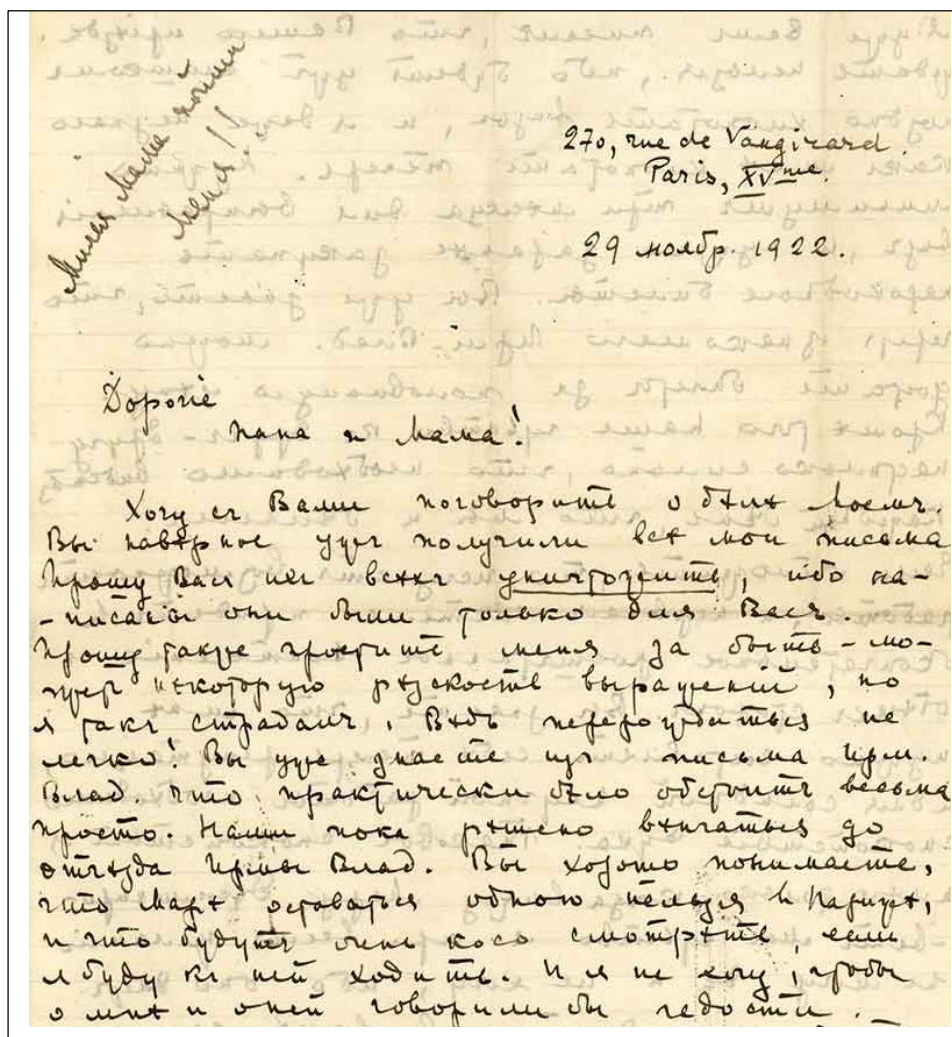 Милая Мама пойми
меня!!
270, rue de Vaugirard.
Paris, XVme.
29 ноябр. 1922.
Дорогіе
папа и мама!
Хочу съ Вами поговорить о дѣлѣ моемъ.
Вы навѣрное ужъ получили всѣ мои письма
Прошу Васъ ихъ всѣхъ уничтожить, ибо на-
-писаны они были только для Васъ.
Прошу также простить меня за быть-мо-
жетъ нѣкоторую рѣзкость выраженій, но
я такъ страдалъ. Вѣдь переродиться не
легко! Вы уже знаете изъ письма Ирм.
Влад. что практически дѣло обстоитъ весьма
просто. Нами пока рѣшено вѣнчаться до
отъѣзда Ирмы Влад. Вы хорошо понимаете,
что Марѣ оставаться одною нельзя в Парижѣ,
и что будутъ очень косо смотрѣть, если
я буду къ ней ходить. И я не хочу, чтобы
о мнѣ и о ней говорили бы гадости.